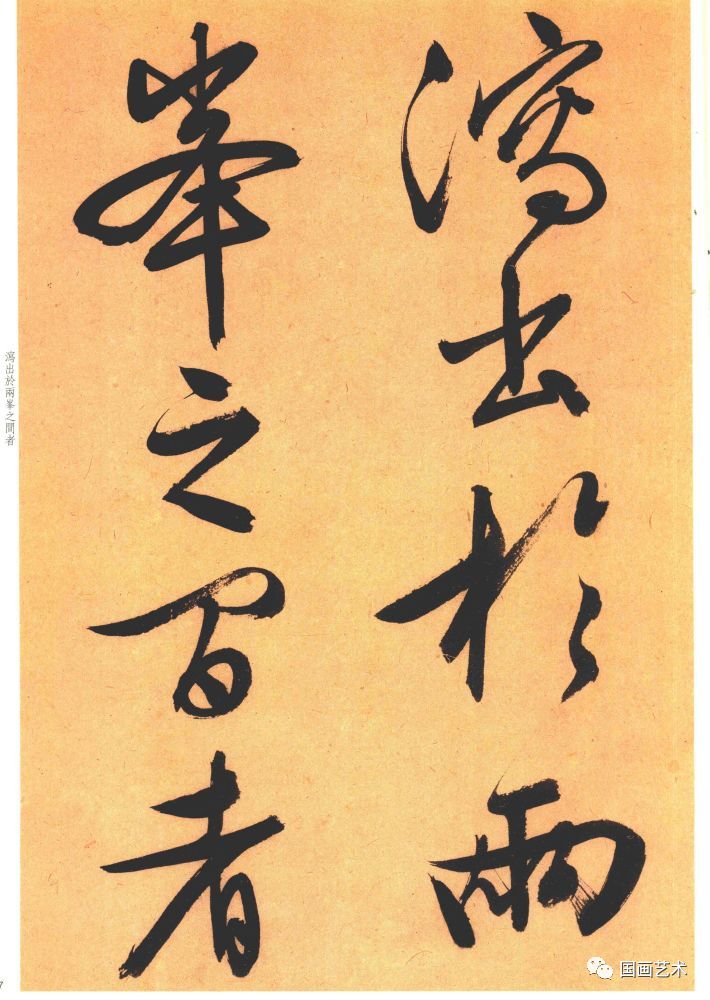 瀉出於兩
峯之間者
瀉出於兩峯之間者
国画艺术